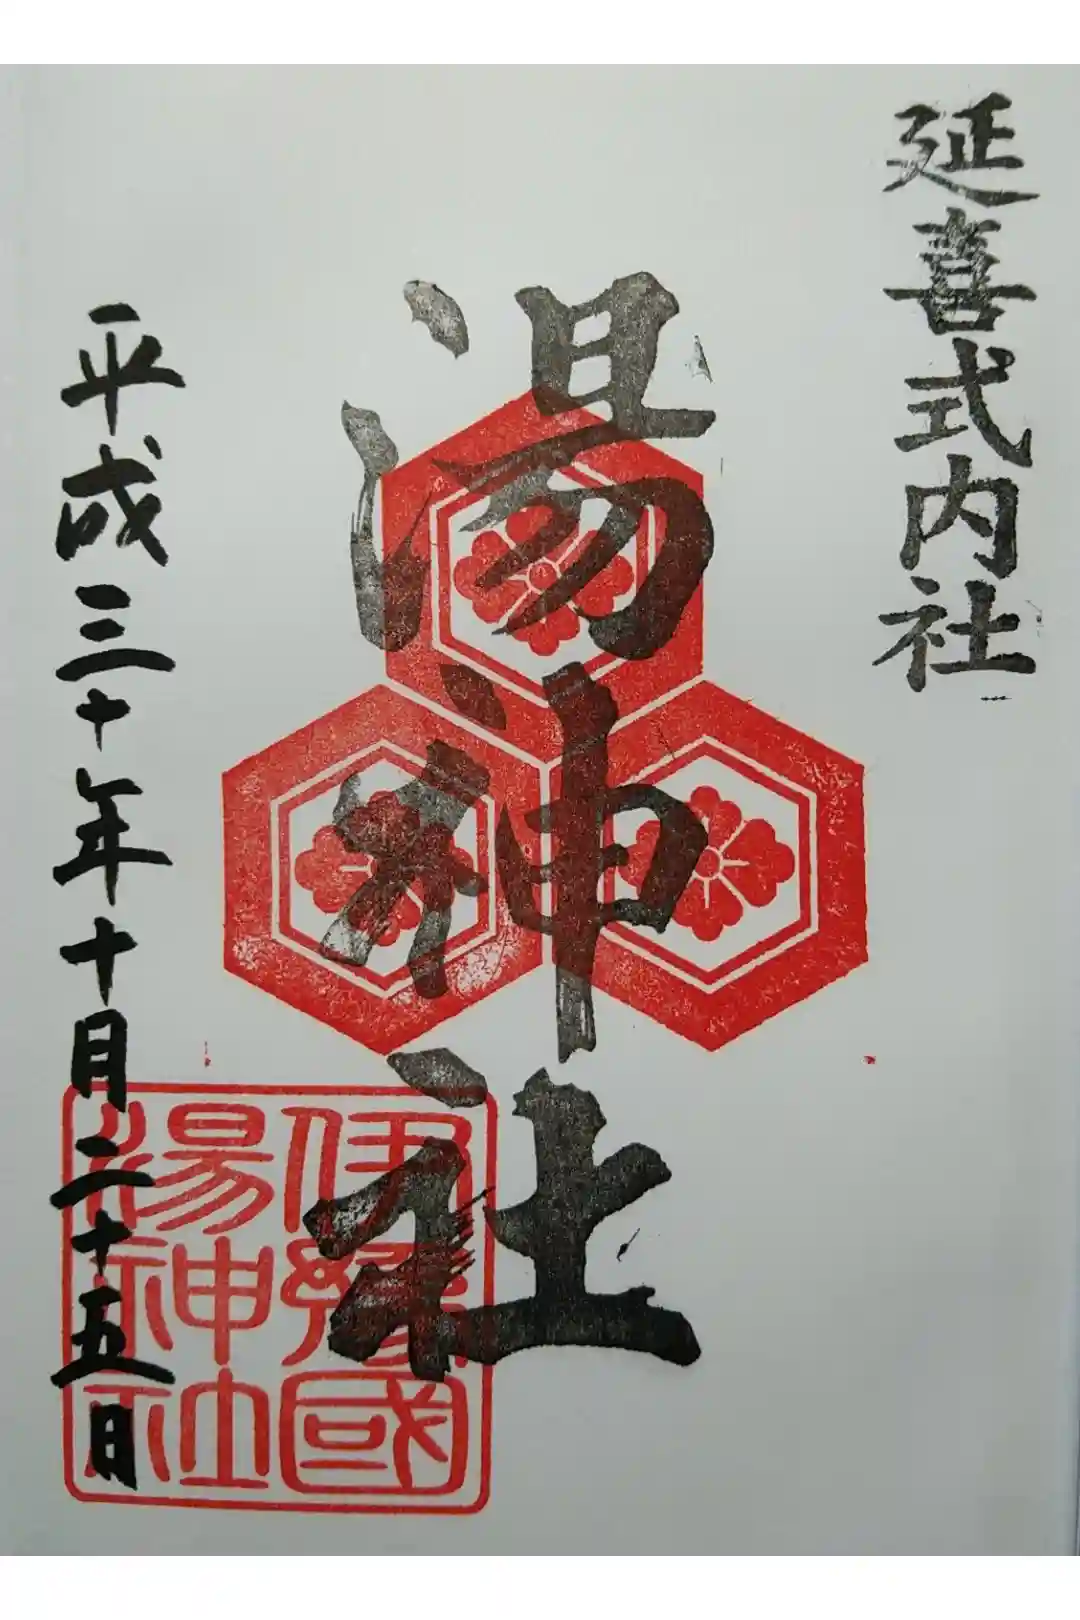 延喜式内社
湯神社
伊豫國
湯神社
平成三十年十月二十五日